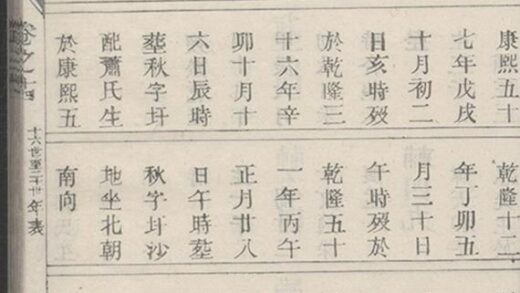 康熙五十
七年戊戌
十月初二
日亥時歿
於乾隆三
十六年辛
卯十月十
六日辰時
塟秋字圩
配蕭氏生
於康熙五
乾隆十二
年丁卯五
月三十日
午時歿於
乾隆五十
一年丙午
正月廿八
日午時塟
秋字圩沙
地坐北朝
南向
卷之
十六世至二十世年表